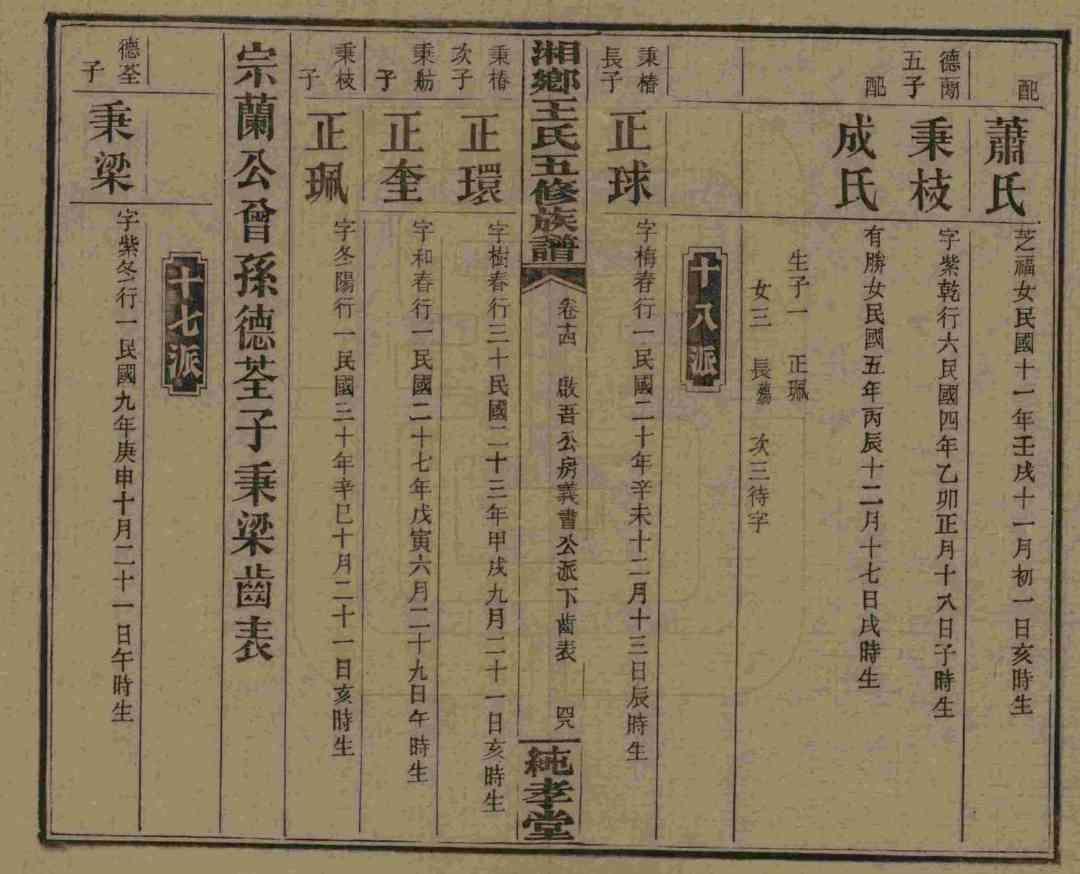 配
蕭氏
芝福女民國十一年壬戌十一月初一日亥時生
德爾
五子
秉枝
字紫乾行六民國四年乙卯正月十八日子時生
配
成氏
有勝女民國五年丙辰十二月十七日戌時生
生子一 正珮
女三 長殤 次三待字
十八派
秉椿
長子
正球
字梅春行一民國二十年辛未十二月十三日辰時生
湘鄉王氏五修族譜
卷十四 啟吾公房義書公派下齒表 四九
純孝堂
秉椿
次子
正環
字樹春行三十民國二十三年甲戌九月二十一日亥時生
秉舫
子
正奎
字和春行一民國二十七年戊寅六月二十九日午時生
秉枝
子
正珮
字冬陽行一民國三十年辛巳十月二十一日亥時生
宗蘭公曾孫德荃子秉梁齒表
十七派
德荃
子
秉梁
字紫冬行一民國九年庚申十月二十一日午時生